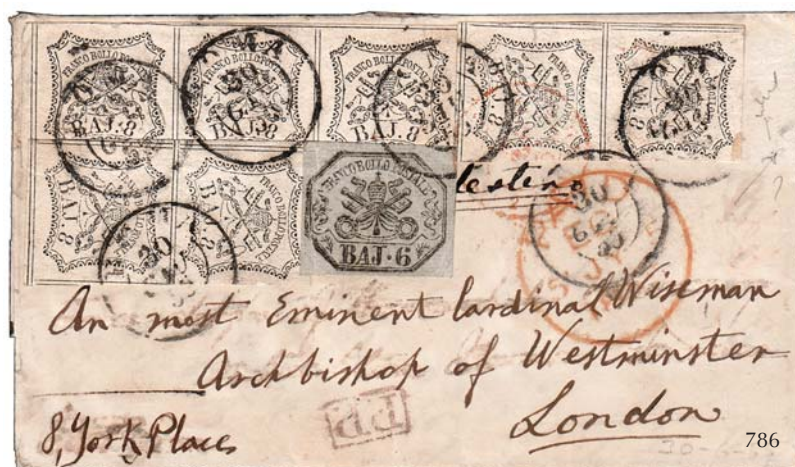 FRANCO BOLLO POSTALE
BAJ. 8
FRANCO BOLLO POSTALE
BAJ. 8
FRANCO BOLLO POSTALE
BAJ. 8
FRANCO BOLLO POSTALE
BAJ. 8
FRANCO BOLLO POSTALE
BAJ. 8
FRANCO BOLLO POSTALE
BAJ. 8
FRANCO BOLLO POSTALE
BAJ. 8
FRANCO BOLLO POSTALE
BAJ-6
ROMA
30
An most Eminent Cardinal Wiseman
Archbishop of Westminster
8, York Place
London
786